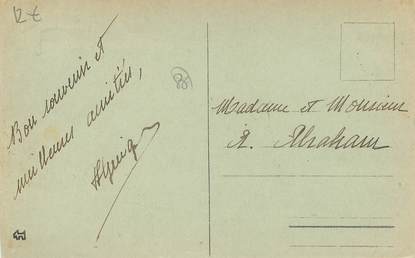 12 €
Bon souvenir et
meilleures amitiés,
Madame et Monsieur
A. Abraham